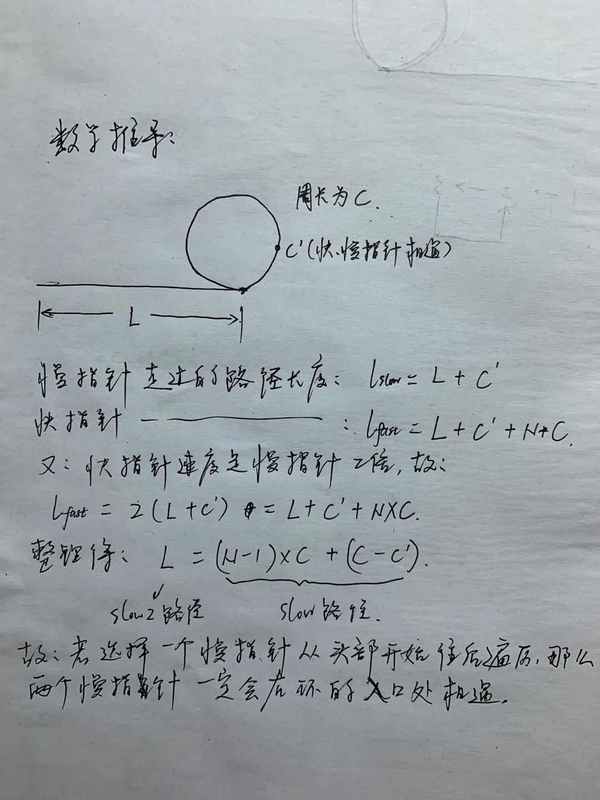 数学推导:
周长为C.
C'(快、慢指针相遇)
L
慢指针走过的路径长度: lslow = L + C'
快指针 ———— : lfast = L + C' + N*C.
又: 快指针速度是慢指针2倍, 故:
lfast = 2(L+C') = L + C' + N×C.
整理得: L = (N-1)×C + (C-C').
slow2路径 slow路径.
故: 若选择一个慢指针从头部开始往后遍历, 那么
两个慢指针一定会在环的入口处相遇.